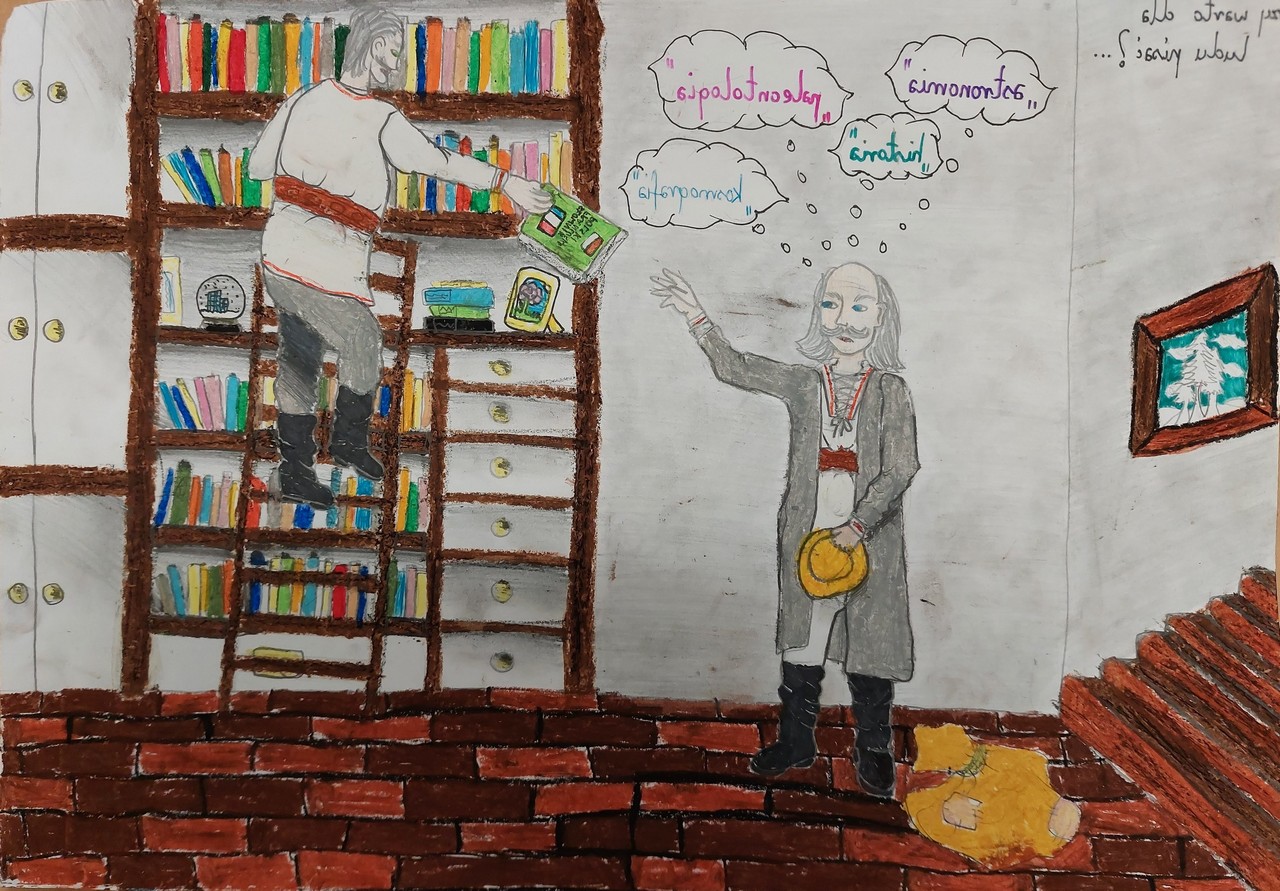 warto dla
ludu pisać?...
"astronomia"
"paleontologia"
"historia"
"kosmografia"